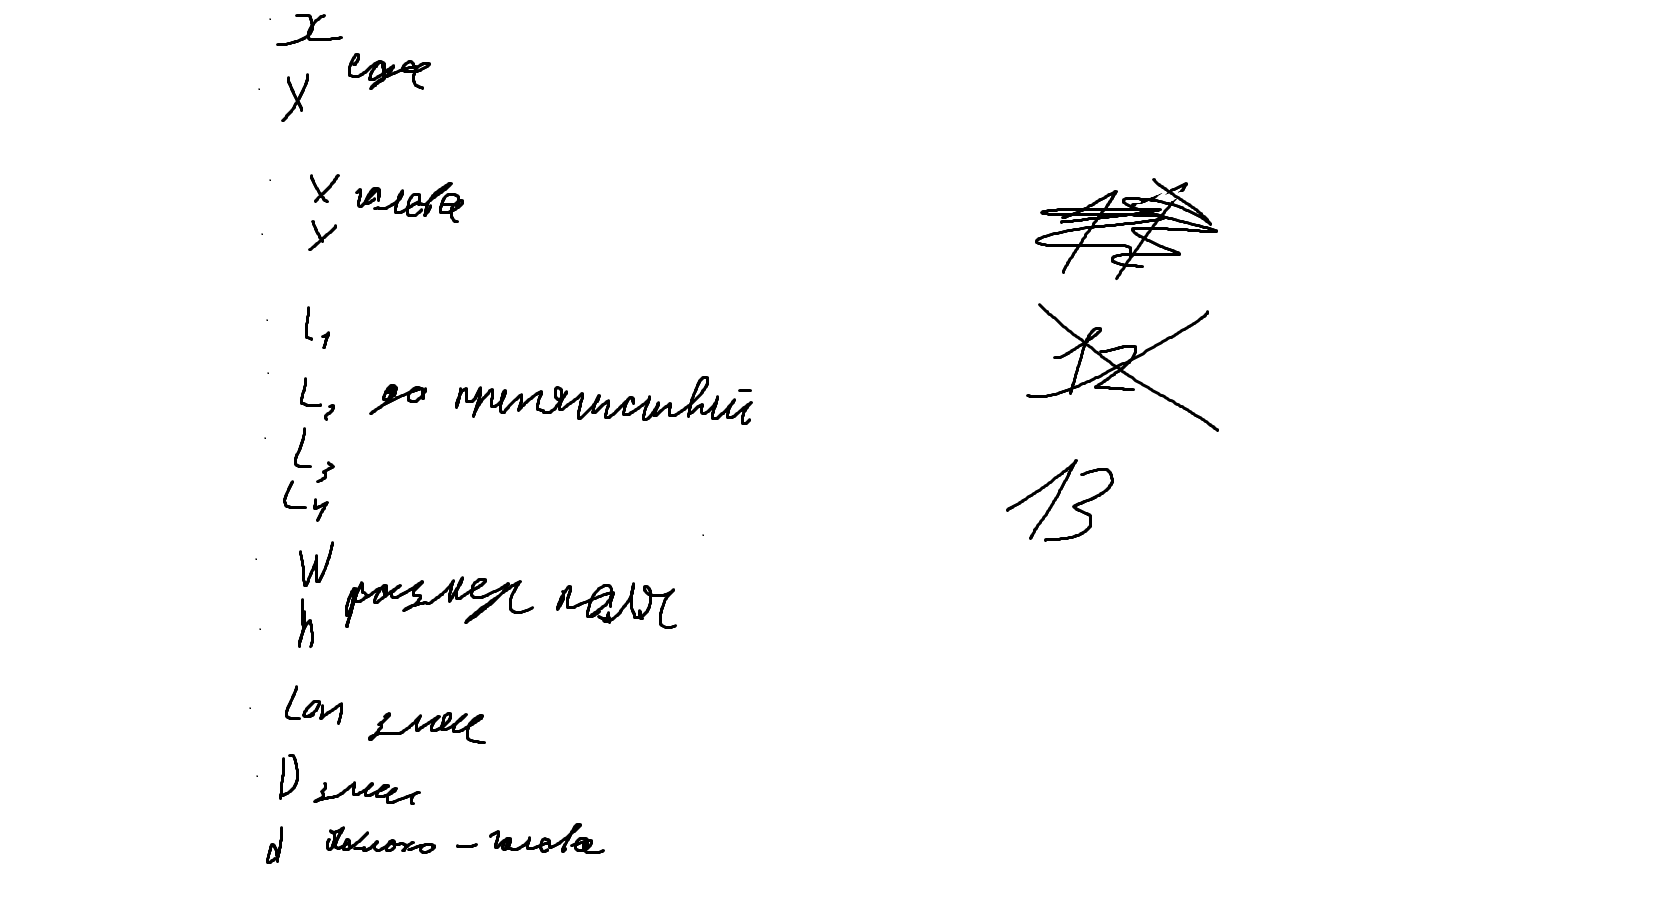 X
еда
Y
X голова
Y
L1
L2 до препятствий
12
L3
L4
13
W
размер поля
h
Lоп змеи
D змеи
d яблоко - голова